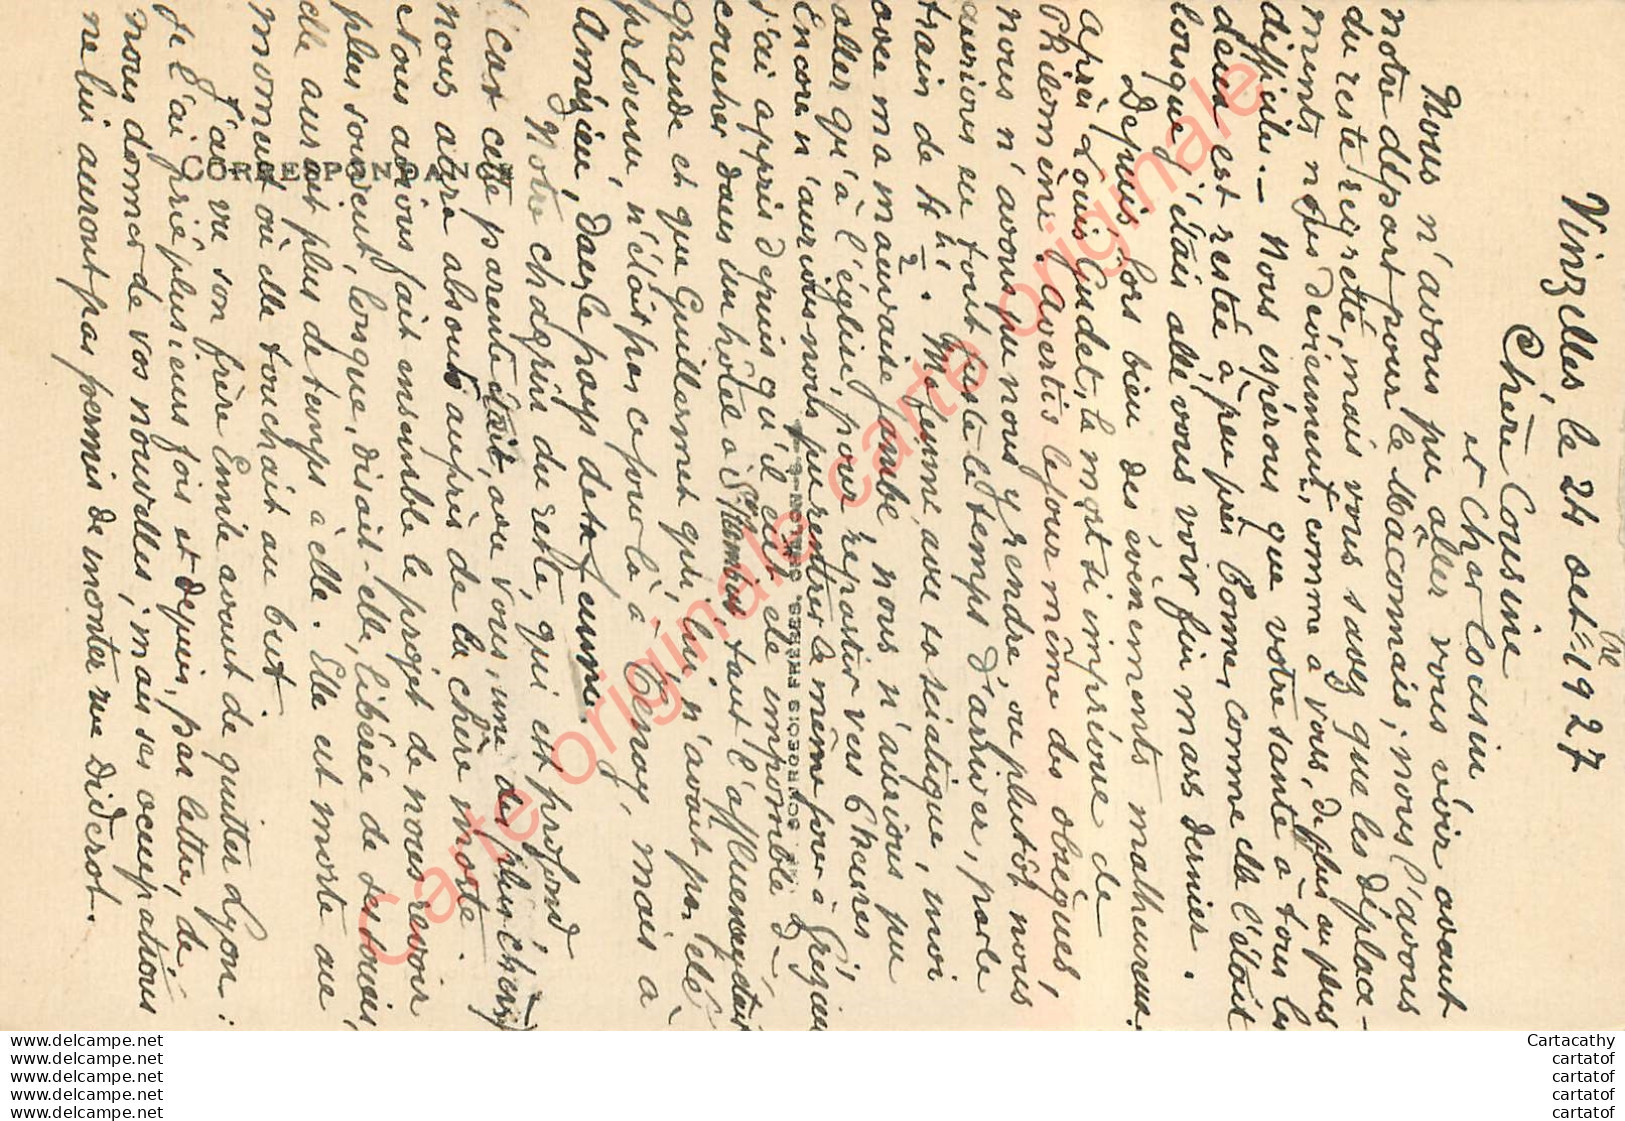 Vinzelles, le 24 octbre 1927
Chère Cousine
et Cher Cousin
Nous n'avons pu aller vous voir avant
notre départ pour le Maconnais; nous l'avons
du reste regretté, mais vous savez que les déplace-
ments nous deviennent, comme à vous, de plus en plus
difficiles. - Nous espérons que votre santé à tous les
deux est restée à peu près bonne, comme elle l'était
lorsque j'étais allé vous voir fin mars dernier.
Depuis lors bien des évènements malheureux.
après Louis Gudet, la mort si imprévue de
Philomène. Avertis le jour même des obsèques,
nous n'avons pu nous y rendre, ou plutôt nous
aurions eu tout juste le temps d'arriver, par le
train de 4h ½. Ma femme avec sa sciatique, moi
avec ma mauvaise jambe, nous n'aurions pu
aller qu'à l'église, pour repartir vers 6 heures
Encore n'aurions-nous pu rentrer le même jour à
J'ai appris depuis qu'il eût été impossible de
coucher dans un hôtel à tant l'affluence y était
grande et que Guillermet qui, lui n'avait pas été
prévenu, n'était pas ce jour là à mais à
Amérieu, dans le pays de sa femme.
Notre chagrin du reste, qui est profond
car cette parente était, avec vous, une des plus chères
nous a été absout auprès de la chère morte
Nous avions fait ensemble le projet de nous revoir
plus souvent, lorsque, disait-elle, libérée de ses soucis,
elle aurait plus de temps à elle. Elle est morte au
moment où elle touchait au but
J'ai vu son frère Emile avant de quitter Lyon:
Je l'ai prié plusieurs fois et depuis, par lettre, de
nous donner de vos nouvelles; mais ses occupations
ne lui auront pas permis de monter rue Diderot.
CORRESPONDANCE
BOURGEOIS FRERES, CHALON-S-S
Carte originale carte originale
Carte originale
www.delcampe.net
www.delcampe.net
www.delcampe.net
www.delcampe.net
www.delcampe.net
Cartacathy
cartatof
cartatof
cartatof
cartatof